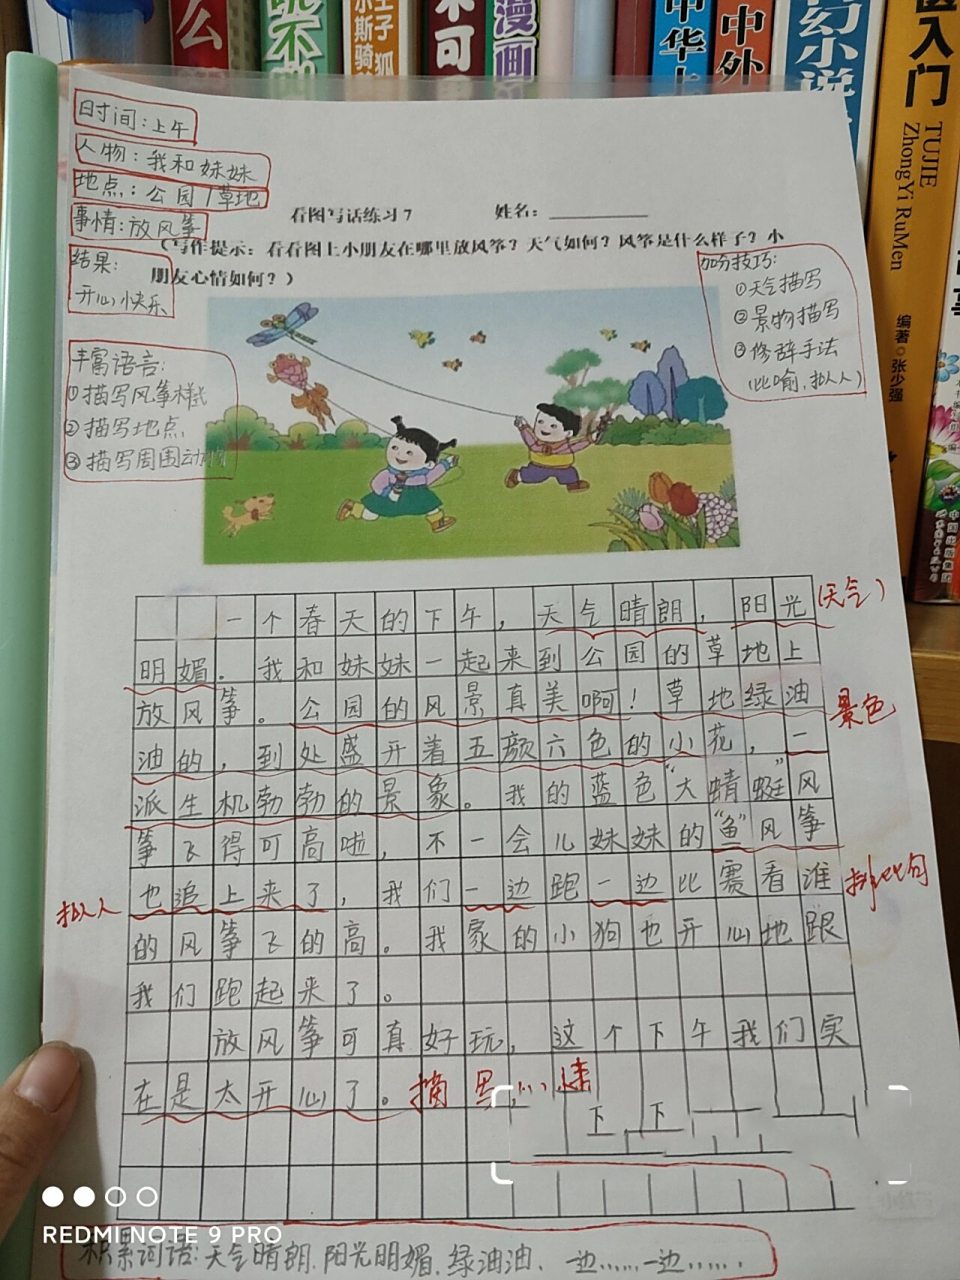 么
漫画
不可
中华上
中外
幻小说
入门
TUJIE
ZhongYi RuMen
编著 张少强
时间:上午
人物:我和妹妹
地点:公园/草地
事情:放风筝
结果:
开心快乐
看图写话练习7 姓名:
(写作提示:看看图上小朋友在哪里放风筝?天气如何?风筝是什么样子?小
朋友心情如何?)
加分技巧:
①天气描写
②景物描写
③修辞手法
(比喻,拟人)
丰富语言:
①描写风筝样式
②描写地点
③描写周围动物
一个春天的下午,天气晴朗,阳光(天气)
明媚.我和妹妹一起来到公园的草地上
放风筝。公园的风景真美啊!草地绿油
景色
油的,到处盛开着五颜六色的小花,一
派生机勃勃的景象。我的蓝色“大蜻蜓”风
筝飞得可高啦,不一会儿妹妹的“鱼”风筝
也追上来了,我们一边跑一边比赛看谁
拟人
排比句
的风筝飞的高。我家的小狗也开心地跟
我们跑起来了。
放风筝可真好玩,这个下午我们实
在是太开心了。描写心情
下下
REDMI NOTE 9 PRO
积累词语:天气晴朗.阳光明媚.绿油油、一边……一边……